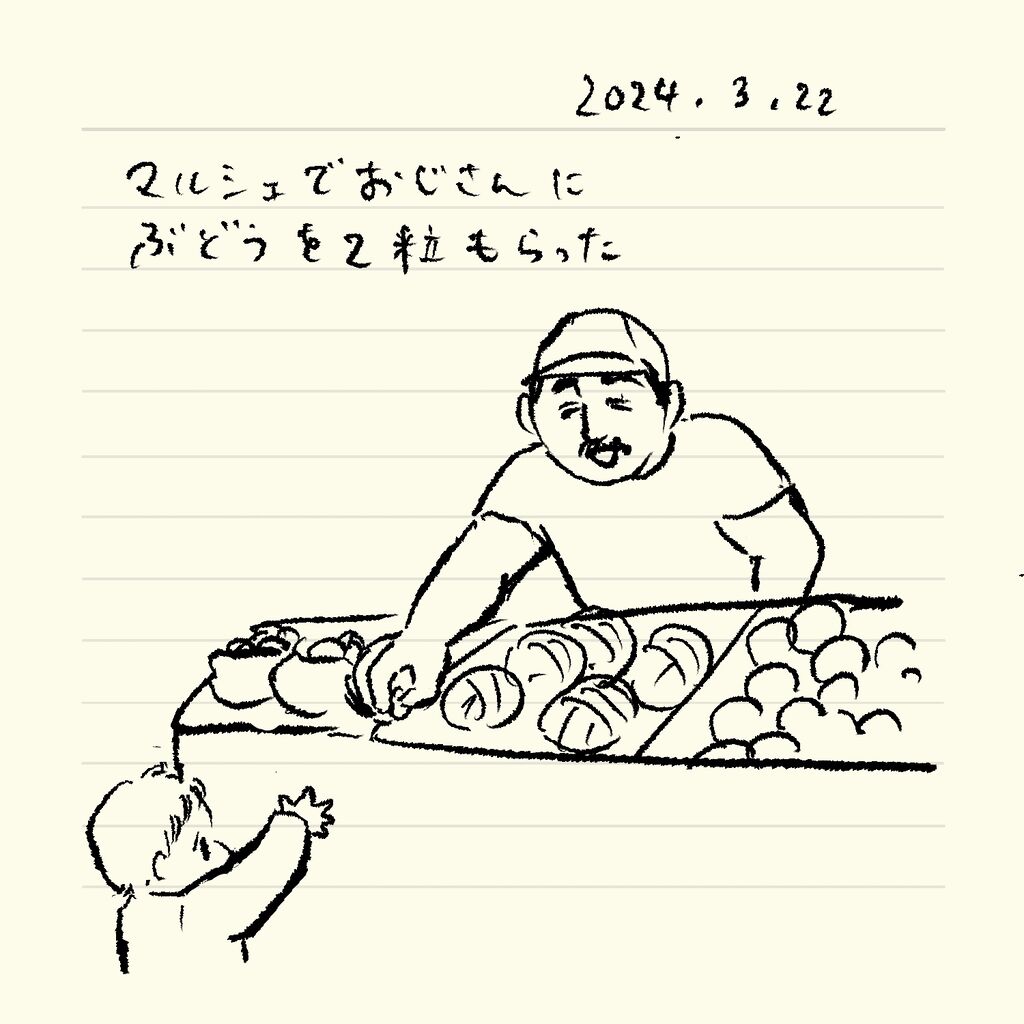 2024.3.22
マルシェでおじさんに
ぶどうを2粒もらった